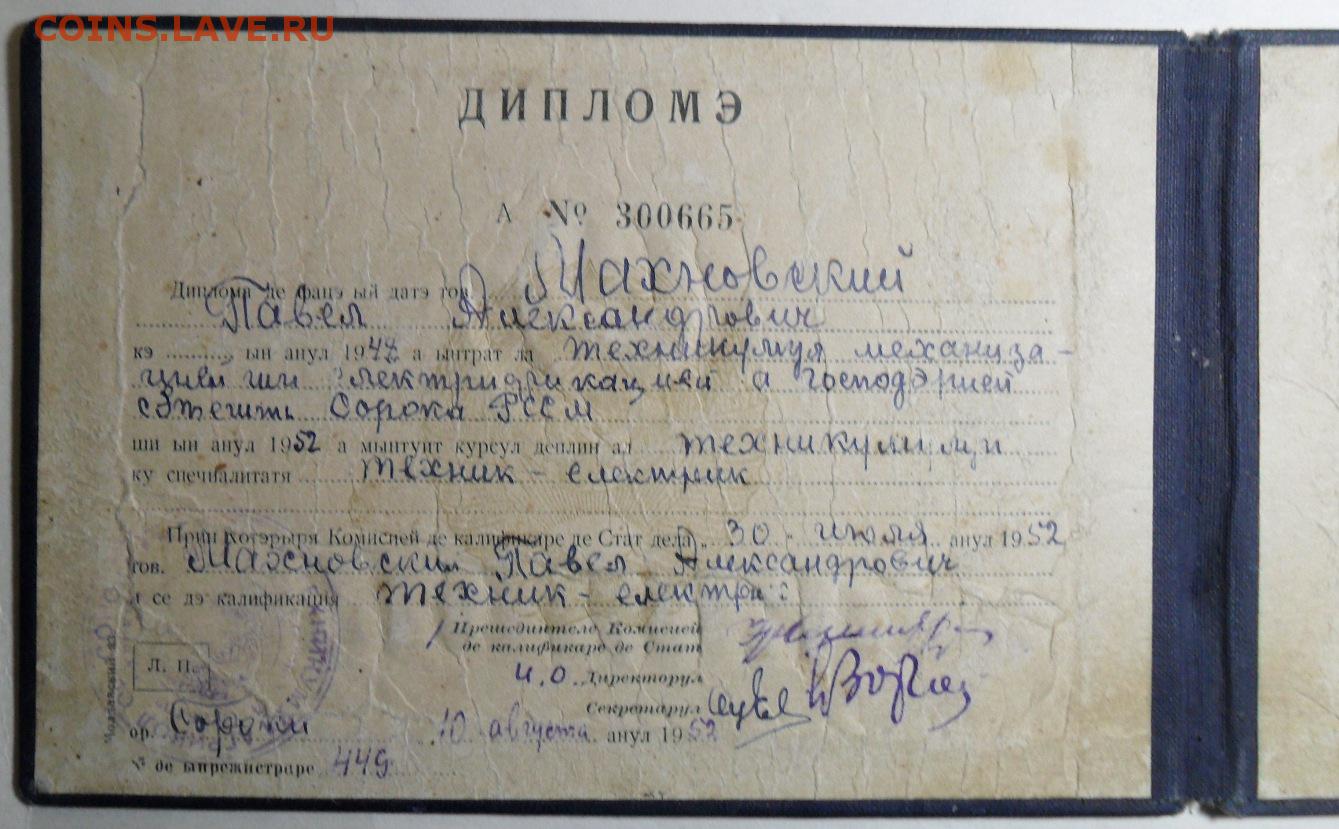 COINS.LAVE.RU
ДИПЛОМЭ
А № 300665
Диплома де фацэ ый датэ тов. Махновский
Павел Александрович
кэ ын анул 1947 а ынтрат ла техникумул механиза-
цией ши електрификацией а господэрией
сэтешть Сорока РССМ
ши ын анул 1952 а мынтуит курсул деплин ал техникумулуй
ку специалитатя техник - електрик
Прин хотэрыря Комисией де калификаре де Стат дела „30 - июля анул 1952
тов. Махновский Павел Александрович
и се дэ калификация техник - електрик
Прешединтеле Комисией
де калификаре де Стат
Л. П.
И.О. Директорул
Секретарул
ор. Сороки 10 августа анул 1952
№ де ынрежистраре 449